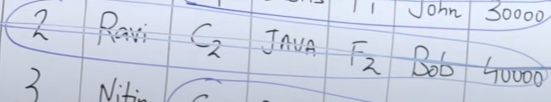 John 30000
2 Ravi C2 JAVA F2 Bob 40000
3 Nitin